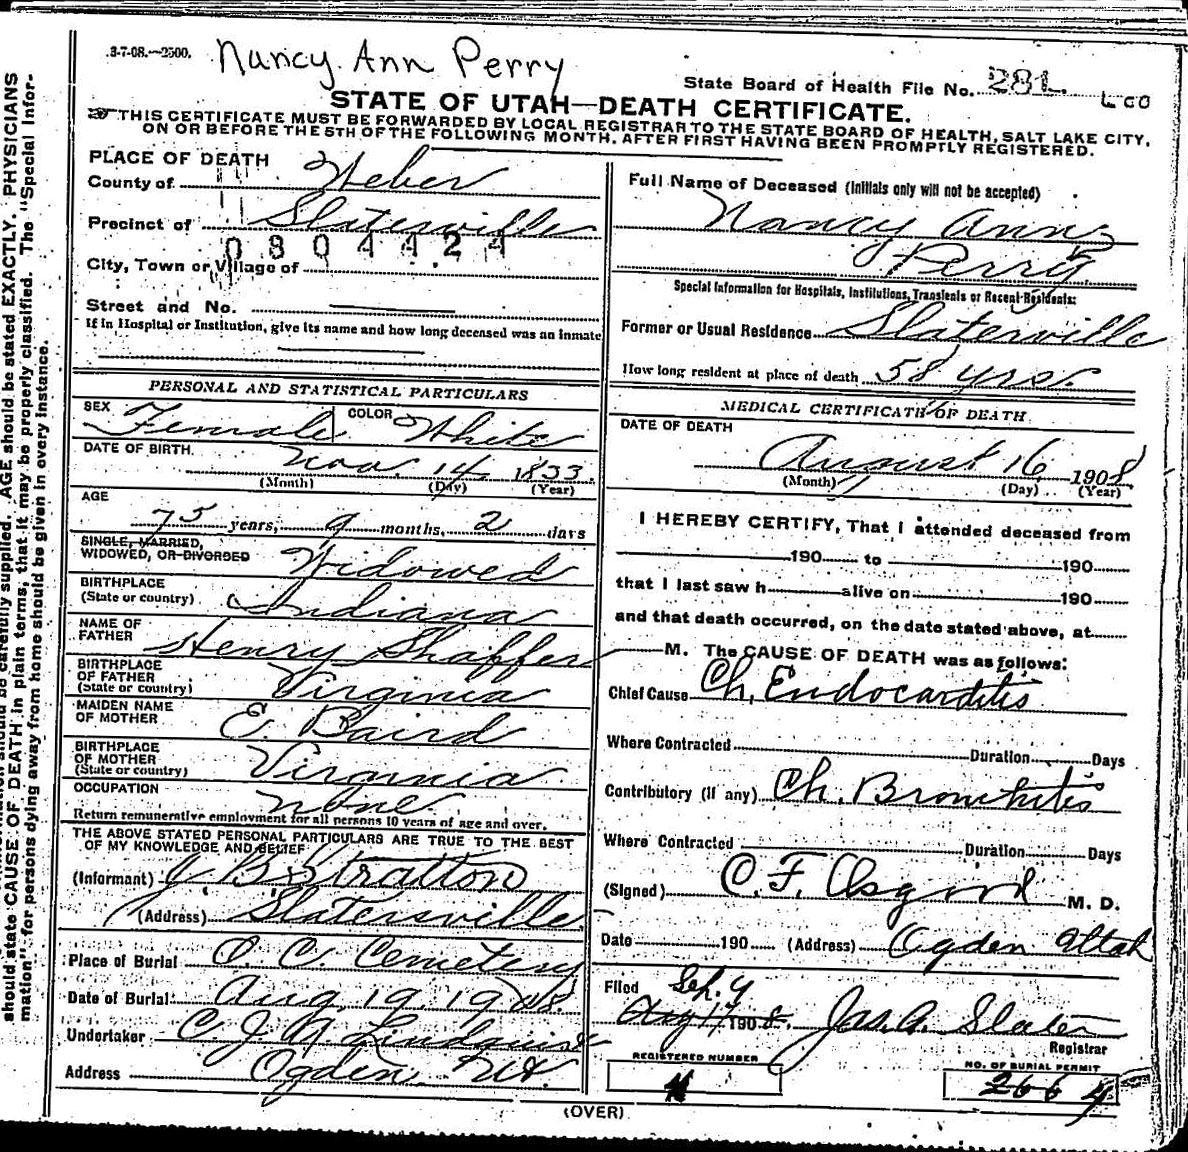 3-7-08.—2500.
Nancy Ann Perry
State Board of Health File No. 281
STATE OF UTAH—DEATH CERTIFICATE.
THIS CERTIFICATE MUST BE FORWARDED BY LOCAL REGISTRAR TO THE STATE BOARD OF HEALTH, SALT LAKE CITY,
ON OR BEFORE THE 5TH OF THE FOLLOWING MONTH, AFTER FIRST HAVING BEEN PROMPTLY REGISTERED.
PLACE OF DEATH
County of Weber
Precinct of Slaterville
0804424
City, Town or Village of
Street and No.
If in Hospital or Institution, give its name and how long deceased was an inmate
PERSONAL AND STATISTICAL PARTICULARS
SEX Female COLOR White
DATE OF BIRTH Nov. 14 1833
(Month) (Day) (Year)
AGE
75 years, 9 months, 2 days
SINGLE, MARRIED,
WIDOWED, OR DIVORSED Widowed
BIRTHPLACE
(State or country) Indiana
NAME OF
FATHER Henry Shaffer
BIRTHPLACE
OF FATHER
(State or country) Virginia
MAIDEN NAME
OF MOTHER E. Baird
BIRTHPLACE
OF MOTHER
(State or country) Virginia
OCCUPATION None
Return remunerative employment for all persons 10 years of age and over.
THE ABOVE STATED PERSONAL PARTICULARS ARE TRUE TO THE BEST
OF MY KNOWLEDGE AND BELIEF
(Informant) J. B. Stratton
(Address) Slatersville
Place of Burial O. C. Cemetery
Date of Burial Aug 19 1908.
Undertaker C. J. A. Lindquist
Address Ogden Ut.
Full Name of Deceased (Initials only will not be accepted)
Nancy Ann
Perry
Special Information for Hospitals, Institutions, Transients or Recent Residents:
Former or Usual Residence Slaterville
How long resident at place of death 58 yrs.
MEDICAL CERTIFICATE OF DEATH
DATE OF DEATH
August 16 1908
(Month) (Day) (Year)
I HEREBY CERTIFY, That I attended deceased from
190 to 190
that I last saw h alive on 190
and that death occurred, on the date stated above, at
M. The CAUSE OF DEATH was as follows:
Chief Cause Ch, Endocarditis
Where Contracted Duration Days
Contributory (If any) Ch. Bronchitis
Where Contracted Duration Days
(Signed) O. F. Osgood M. D.
Date 190 (Address) Ogden Utah
Filed Sep. 9
Aug 17 1908. Jas. A. Slater
Registrar
REGISTERED NUMBER
NO. OF BURIAL PERMIT
2664
(OVER)
AGE should be stated EXACTLY. PHYSICIANS
should state CAUSE OF DEATH in plain terms, that it may be properly classified. The "Special Infor-
mation" for persons dying away from home should be given in every instance.